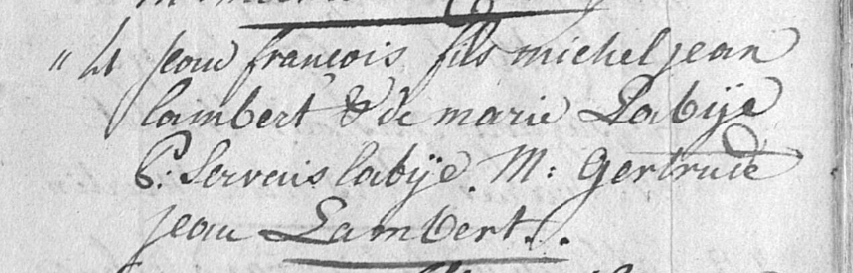 " 21 jean françois fils michel jean
lambert & de marie Labÿe
P: Servais labÿe. M: Gertrude
jean Lambert..